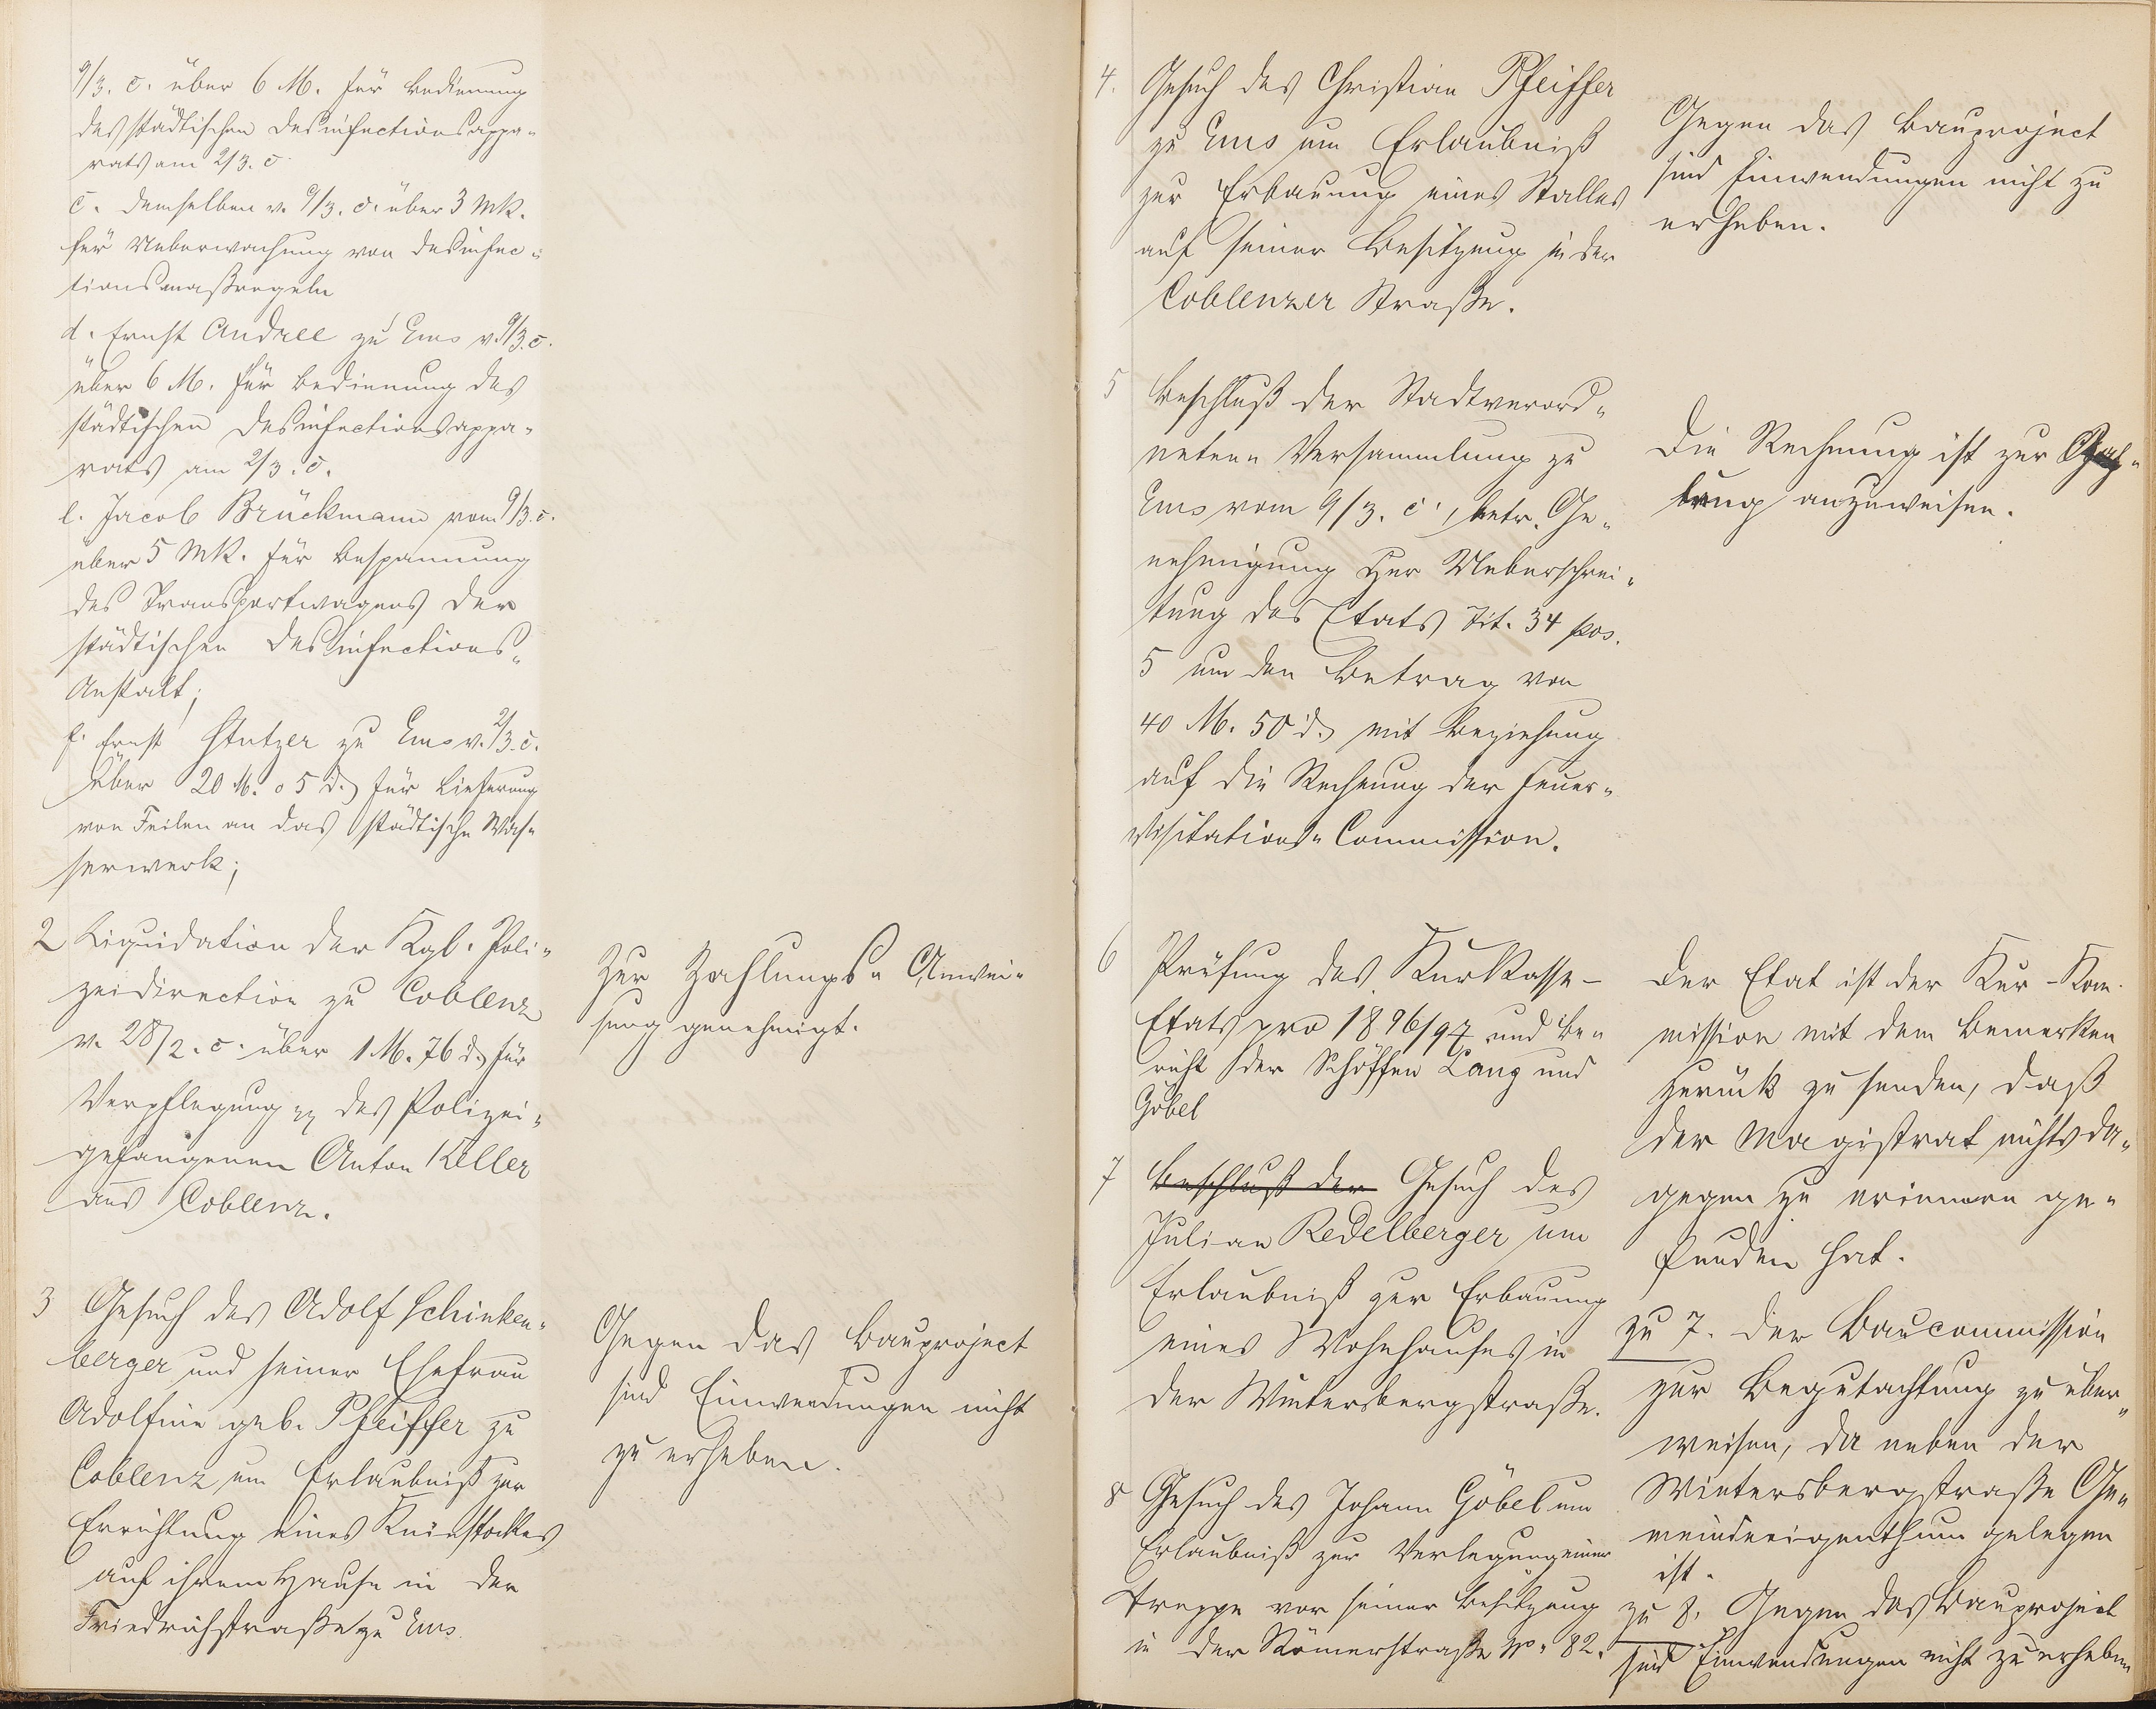 9/3. c. über 6 M. für Bedienung
des städtischen Desinfectionsappa-
rats am 2/3. c.
c. demselben v. 9/3. c. über 3 Mk.
für Ueberwachung von Desinfec-
tionsmaßregeln
d. Ernst Andree zu Ems v. 9/3. c.
über 6 M. für Bedienung des
städtischen Desinfectionsappa-
rats am 2/3. c.
e. Jacob Brückmann vom 9/3. c.
über 5 Mk. für Bespannung
des Transportwagens der
städtischen Desinfections-
Anstalt;
f. Ernst Stutzer zu Ems v. 2/3. c.
über 20 M. 05 d. für Lieferung
von Feilen an das städtische Was-
serwerk;
2 Liquidation der Kgl. Poli-
zeidirection zu Coblenz
v. 28/2. c. über 1 M. 76 d. für
Verpflegung pp des Polizei-
gefangenen Anton Keller
aus Coblenz.
Zur Zahlungs-Anwei-
sung genehmigt.
3 Gesuch des Adolf Schinken-
berger und seiner Ehefrau
Adolfine geb. Pfeiffer zu
Coblenz um Erlaubniß zur
Errichtung eines Kniestockes
auf ihrem Hause in der
Friedrichstraße zu Ems.
Gegen das Bauproject
sind Einwendungen nicht
zu erheben.
4. Gesuch des Christian Pfeiffer
zu Ems um Erlaubniß
zur Erbauung eines Stalles
auf seiner Besitzung in der
Coblenzer Straße.
Gegen das Bauproject
sind Einwendungen nicht zu
erheben.
5 Beschluß der Stadtverord-
neten-Versammlung zu
Ems vom 9/3. c., betr. Ge-
nehmigung zur Ueberschrei-
tung des Etats Tit. 34 pos.
5 um den Betrag von
40 M. 50 d. mit Beziehung
auf die Rechnung der Feuer-
visitations-Commission.
Die Rechnung ist zur Zah-
lung anzuweisen.
6 Prüfung des Kurkasse-
Etats pro 1896/97 und Be-
richt der Schöffen Lang und
Göbel
Der Etat ist der Kur-Kom-
mission mit dem Bemerken
zurück zu senden, daß
der Magistrat nichts da-
gegen zu erinnern ge-
funden hat.
7 Beschluß der Gesuch des
Julian Redelberger um
Erlaubniß zur Erbauung
eines Wohnhauses in
der Wintersbergstraße.
zu 7. Der Baucommission
zur Begutachtung zu über-
weisen, da neben der
Wintersbergstraße Ge-
meindeeigenthum gelegen
ist.
8 Gesuch des Johann Göbel um
Erlaubniß zur Verlegung einer
Treppe vor seiner Besitzung
in der Römerstraße No. 82.
zu 8. Gegen das Bauproject
sind Einwendungen nicht zu erheben